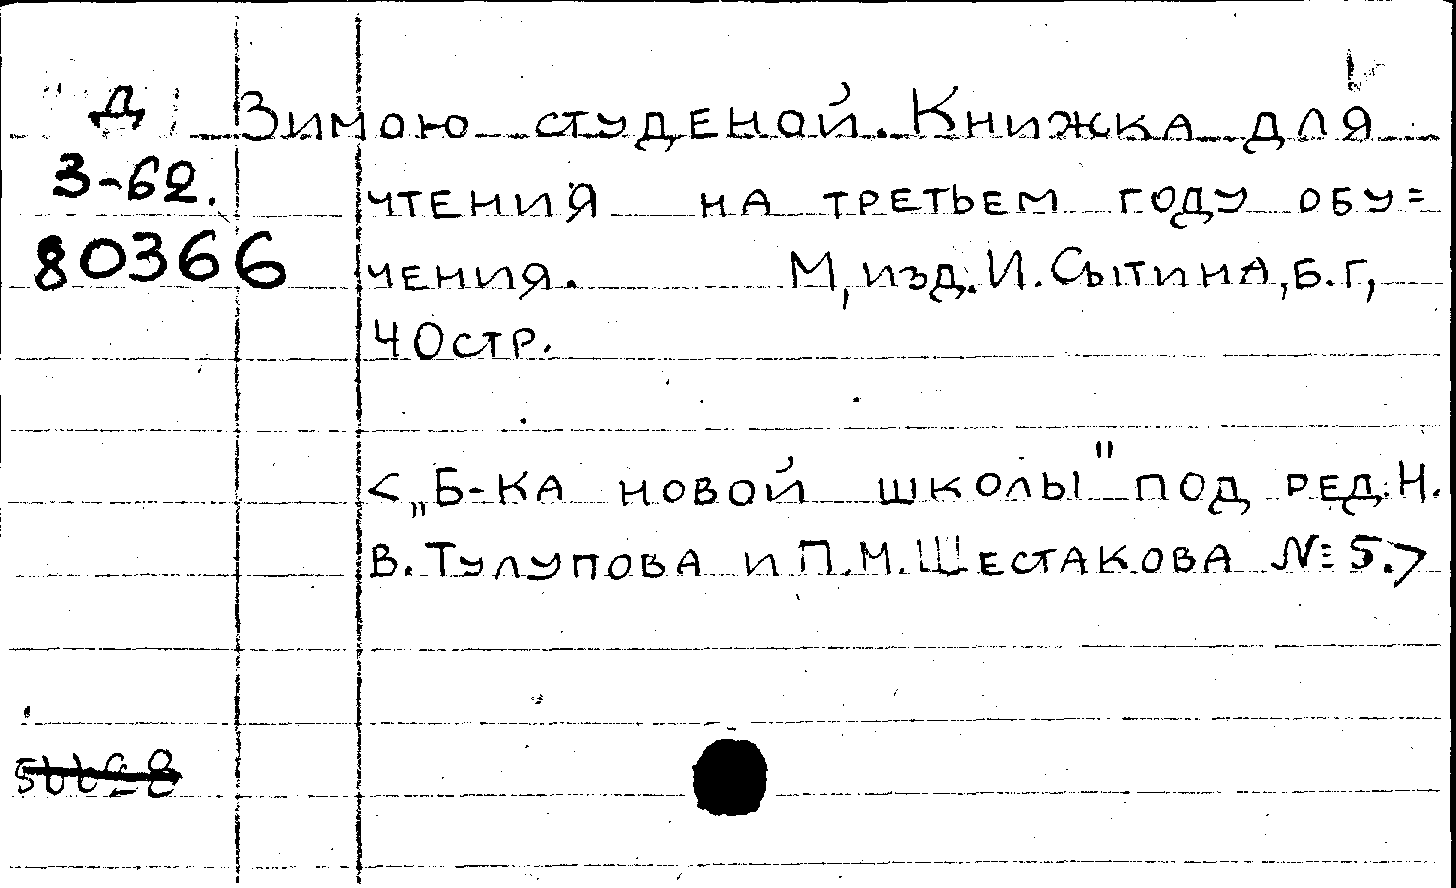 Д Зимою студеной. Книжка для
3-62. чтения на третьем году обу=
80366 чения. М, изд. И. Сытина, Б. Г,
40 стр.
<„Б-ка новой школы" под ред. Н.
В. Тулупова и П. М. Шестакова № 5.>